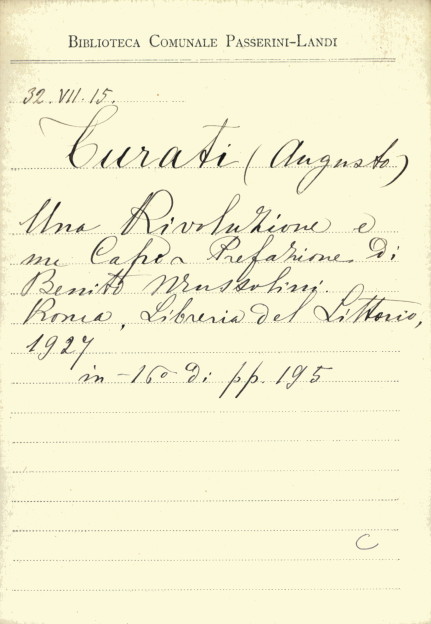 BIBLIOTECA COMUNALE PASSERINI-LANDI
32.VII.15.
Turati (Augusto)
Una Rivoluzione e
un Capo - Prefazione di
Benito Mussolini.
Roma, Libreria del Littorio,
1927
in-16º di pp. 195
C